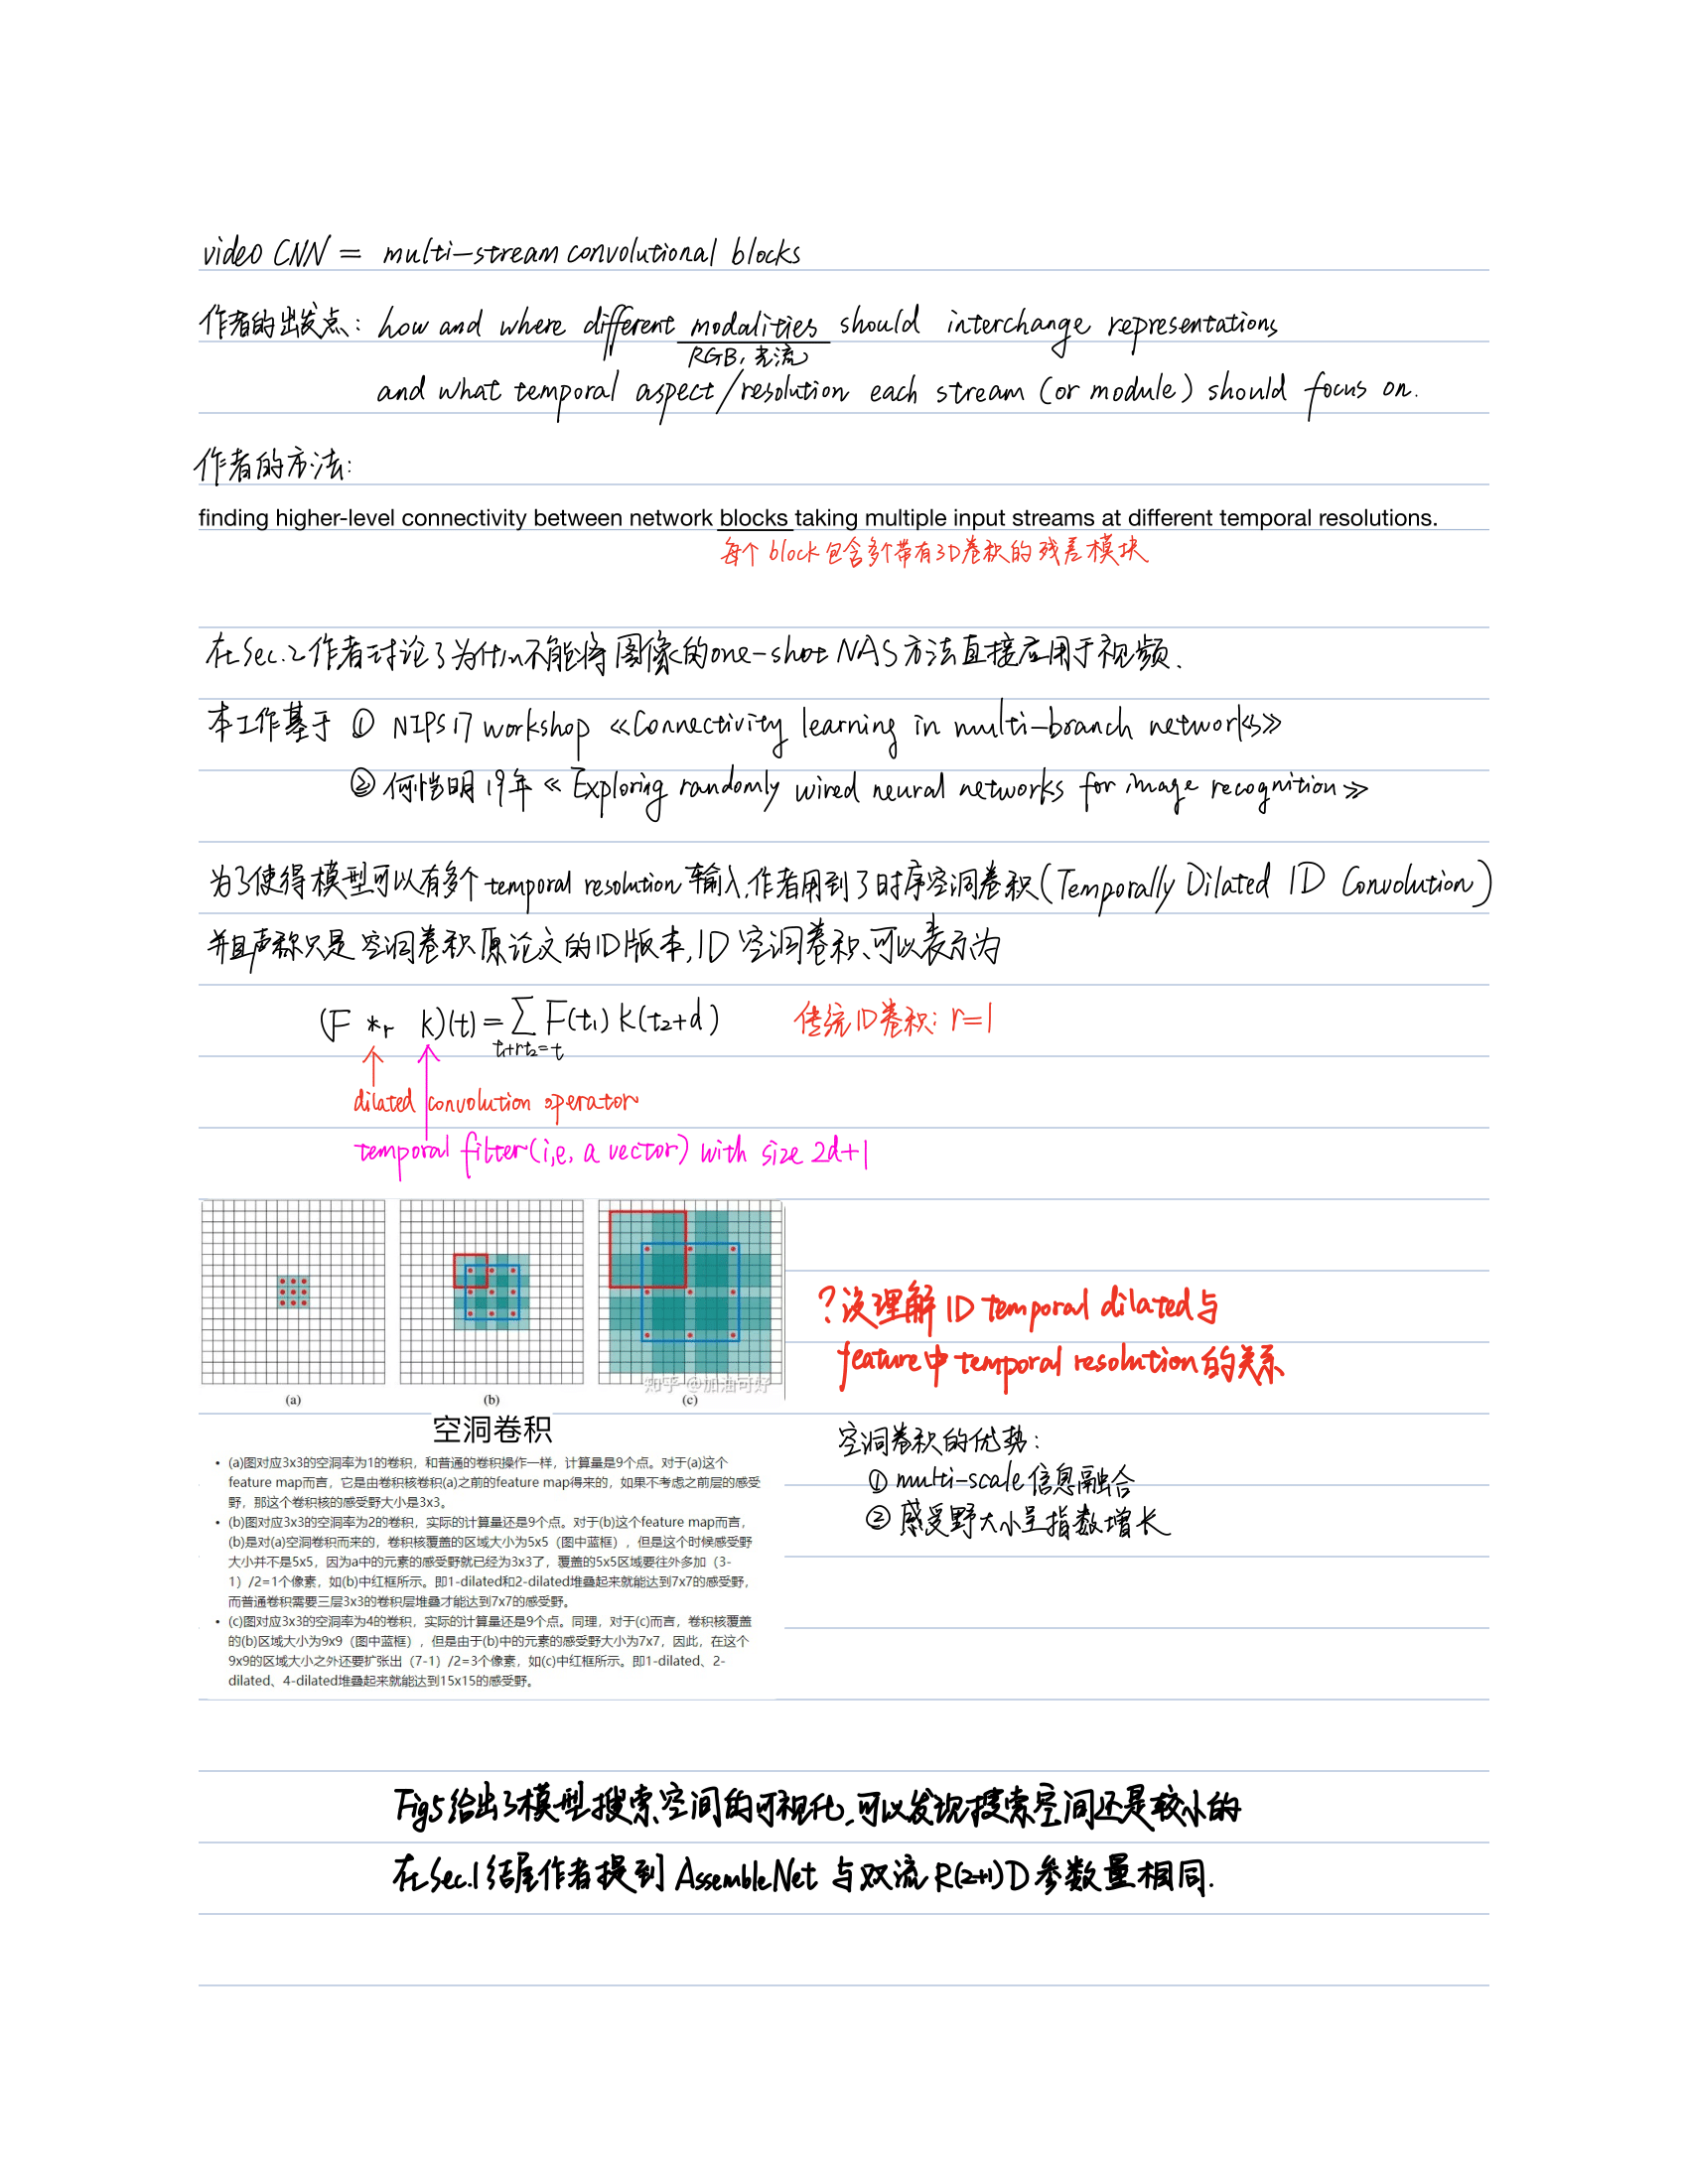 video CNN = multi-stream convolutional blocks
作者的出发点: how and where different modalities should interchange representations
RGB, 光流
and what temporal aspect/resolution each stream (or module) should focus on.
作者的方法:
finding higher-level connectivity between network blocks taking multiple input streams at different temporal resolutions.
每个block包含多个带有3D卷积的残差模块
在Sec.2作者讨论了为什么不能将图像的one-shot NAS方法直接应用于视频.
本工作基于 ① NIPS17 workshop 《Connectivity learning in multi-branch networks》
② 何恺明19年《Exploring randomly wired neural networks for image recognition》
为了使得模型可以有多个temporal resolution输入,作者用到了时序空洞卷积(Temporally Dilated 1D Convolution)
并且声称只是空洞卷积原论文的1D版本,1D空洞卷积可以表示为
(F *r k)(t) = ∑ F(t1) k(t2+d) 传统1D卷积: r=1
t1+rt2=t
dilated convolution operator
temporal filter(i,e, a vector) with size 2d+1
知乎 @加油可好
(a) (b) (c)
空洞卷积
• (a)图对应3x3的空洞率为1的卷积，和普通的卷积操作一样，计算量是9个点。对于(a)这个
feature map而言，它是由卷积核卷积(a)之前的feature map得来的，如果不考虑之前层的感受
野，那这个卷积核的感受野大小是3x3。
• (b)图对应3x3的空洞率为2的卷积，实际的计算量还是9个点。对于(b)这个feature map而言，
(b)是对(a)空洞卷积而来的，卷积核覆盖的区域大小为5x5（图中蓝框），但是这个时候感受野
大小并不是5x5，因为a中的元素的感受野就已经为3x3了，覆盖的5x5区域要往外多加（3-
1）/2=1个像素，如(b)中红框所示。即1-dilated和2-dilated堆叠起来就能达到7x7的感受野，
而普通卷积需要三层3x3的卷积层堆叠才能达到7x7的感受野。
• (c)图对应3x3的空洞率为4的卷积，实际的计算量还是9个点。同理，对于(c)而言，卷积核覆盖
的(b)区域大小为9x9（图中蓝框），但是由于(b)中的元素的感受野大小为7x7，因此，在这个
9x9的区域大小之外还要扩张出（7-1）/2=3个像素，如(c)中红框所示。即1-dilated、2-
dilated、4-dilated堆叠起来就能达到15x15的感受野。
?没理解1D temporal dilated与
feature中temporal resolution的关系
空洞卷积的优势:
① multi-scale信息融合
② 感受野大小呈指数增长
Fig5给出了模型搜索空间的可视化,可以发现搜索空间还是较小的
在Sec.1结尾作者提到AssembleNet与双流R(2+1)D参数量相同.